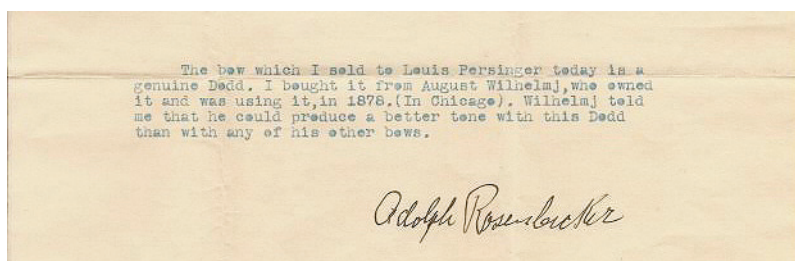 The bow which I sold to Louis Persinger today is a
genuine Dodd. I bought it from August Wilhelmj,who owned
it and was using it,in 1878.(In Chicago). Wilhelmj told
me that he could produce a better tone with this Dodd
than with any of his other bows.
Adolph Rosenbecker